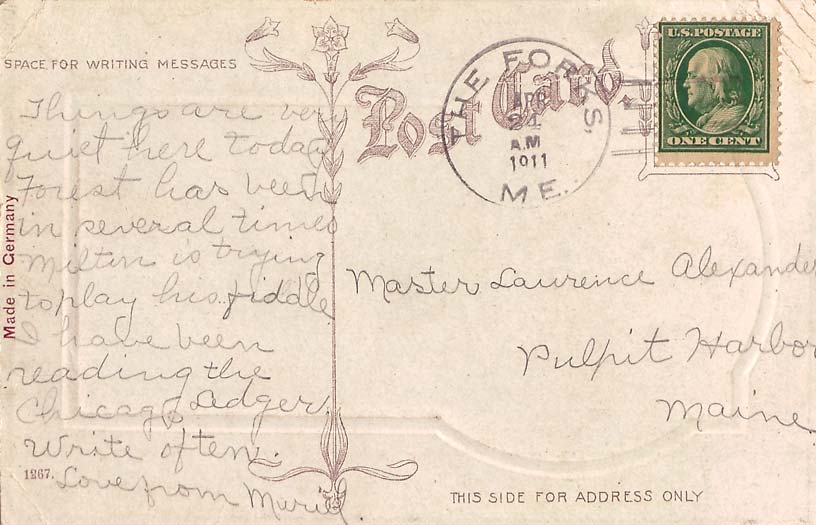 SPACE FOR WRITING MESSAGES
Post Card
THE FORKS,
APR
24
A.M
1911
ME.
U.S. POSTAGE
ONE CENT
Things are very
quiet here today
Forest has been
in several times
Milton is trying
to play his fiddle
I have been
reading the
Chicago Ledger.
Write often.
Love from Muriel
Master Laurence Alexander
Pulpit Harbor
Maine.
Made in Germany
1267.
THIS SIDE FOR ADDRESS ONLY